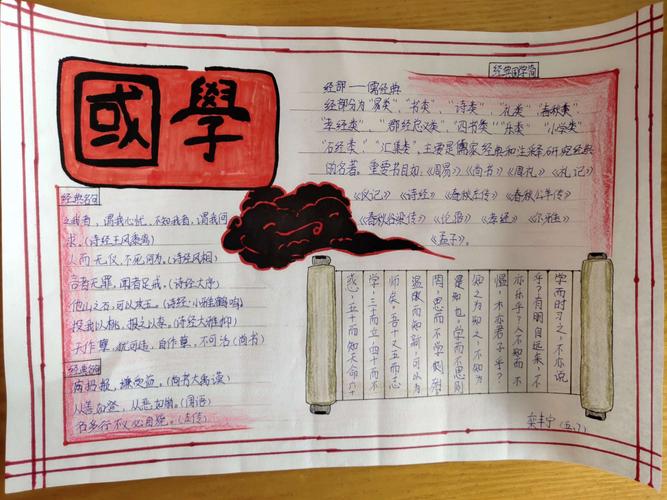 國學
经典国学
经部——儒经典
经部分为"易类""书类""诗类""礼类""春秋类"
"孝经类""群经总义类""四书类""乐类""小学类"
"石经类""汇集类"，主要是儒家经典和注释研究经典
的名著。重要书目如：《周易》《尚书》《周礼》《礼记》
《仪记》《诗经》《春秋左传》《春秋公羊传》
《春秋谷梁传》《论语》《孝经》《尔雅》
《孟子》。
经典名句
知我者，谓我心忧，不知我者，谓我何
求。(诗经王风黍离)
人而无仪，不死何为。(诗经风相)
言者无罪，闻者足戒。(诗经大序)
他山之石，可以攻玉。(诗经·小雅鹤鸣)
投我以桃，报之以李。(诗经大雅抑)
天作孽，犹可违，自作孽，不可活(尚书)
经典名句
满招损，谦受益。(尚书大禹谟)
从善如登，从恶如崩。(国语)
多行不义必自毙。(左传)
学而时习之，不亦说
乎？有朋自远来，不
亦乐乎？人不知而不
愠，不亦君子乎？
知之为知之，不知为
是知也。学而不思则
罔，思而不学则殆
温故而知新，可以为
师矣。吾十又五而志
学，三十而立，四十而不
惑，五十而知天命，六十
栾丰宁(五、7)